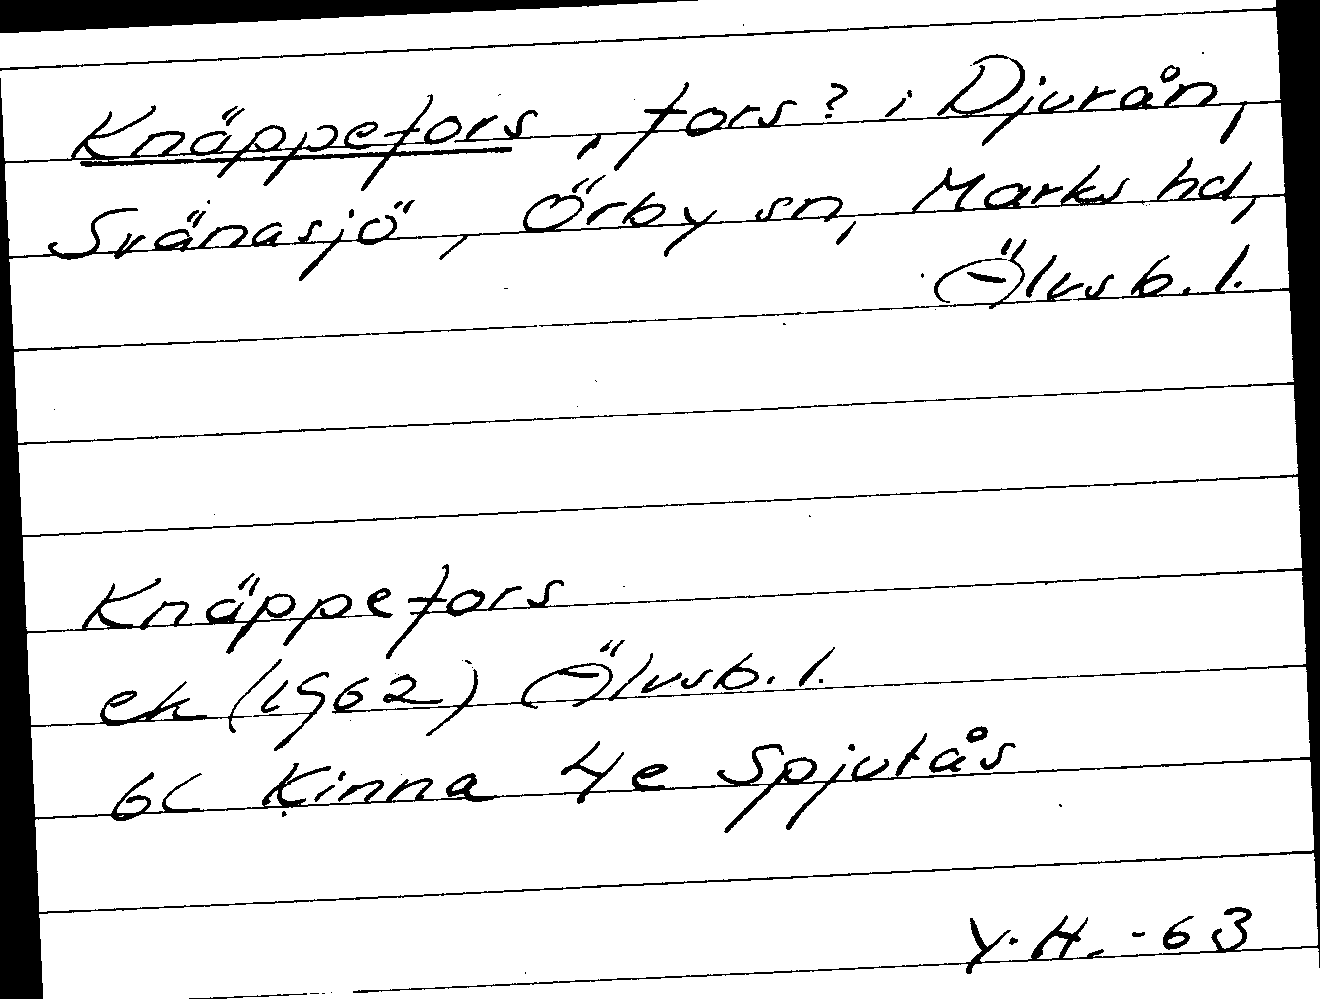 Knäppefors, fors? i Djurån,
Svänasjö, Örby sn, Marks hd,
Älvsb. l.
Knäppefors
ek (1962) Älvsb. l.
6C Kinna 4e Spjutås
Y. H. -63